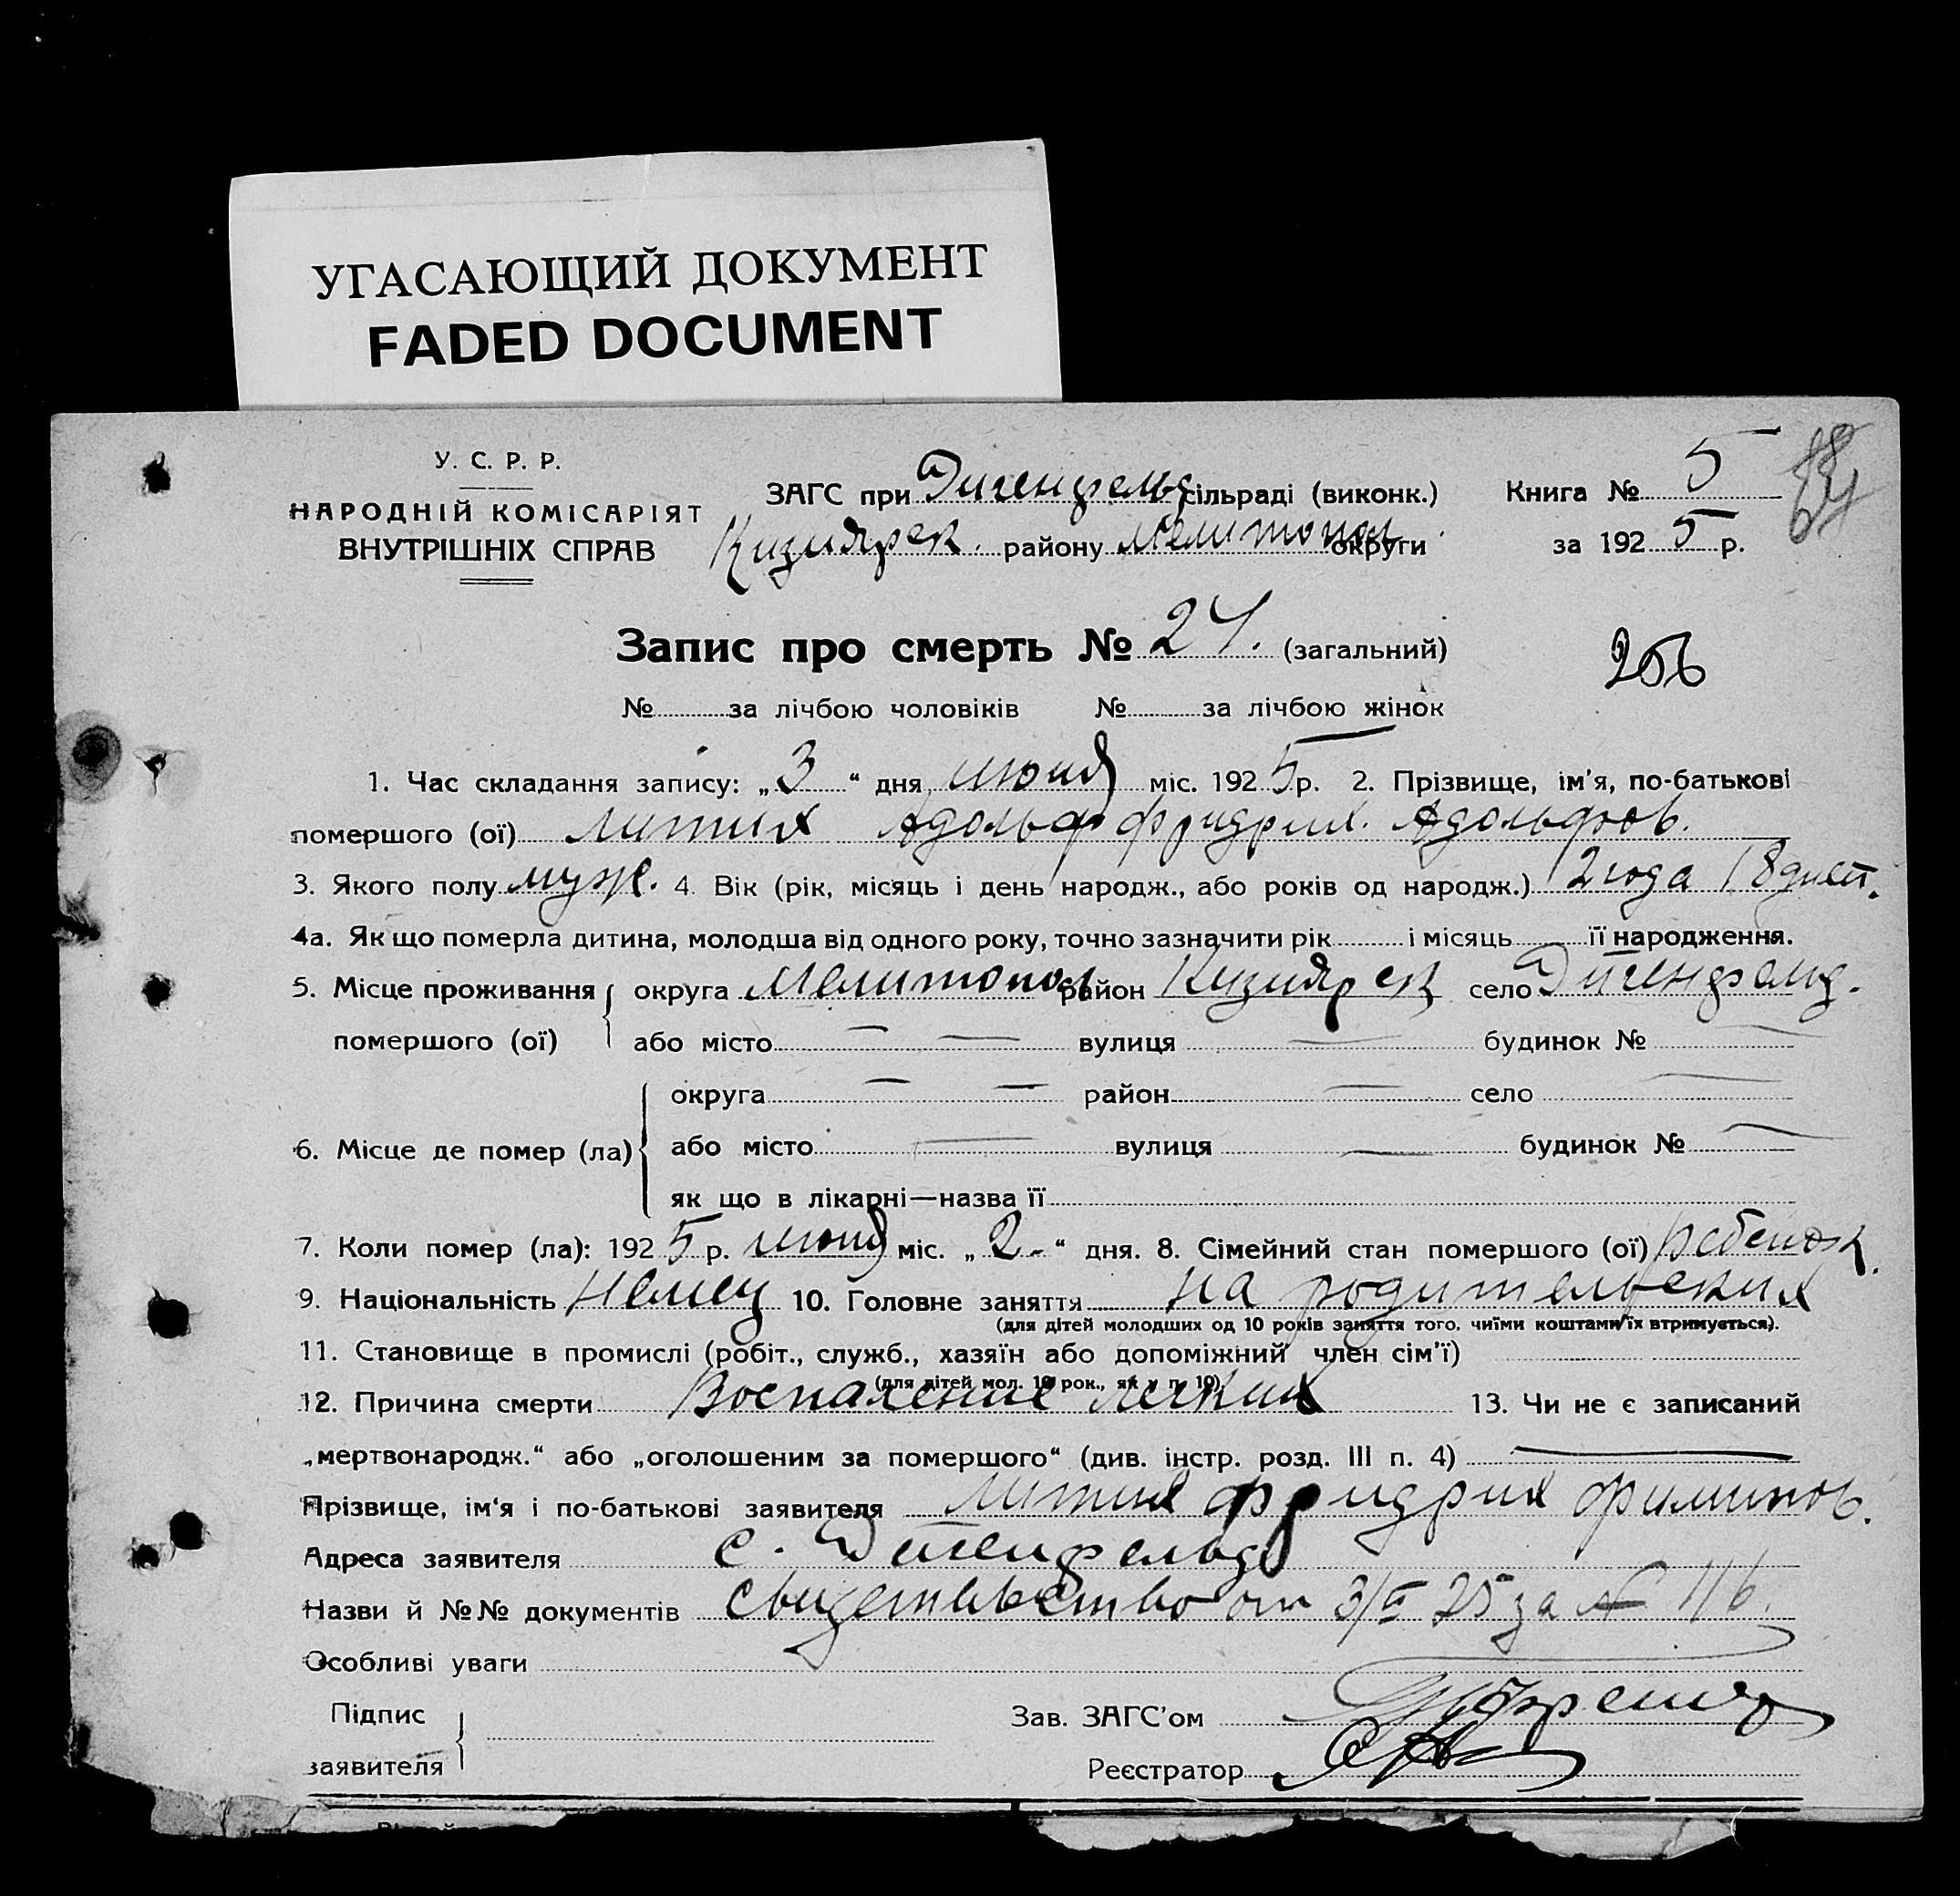 УГАСАЮЩИЙ ДОКУМЕНТ
FADED DOCUMENT
У. С. Р. Р.
НАРОДНІЙ КОМІСАРІЯТ
ВНУТРІШНІХ СПРАВ
ЗАГС при Дигенфельд сільраді (виконк.)
Кизиярск. району Мелитопол округи
Книга № 5
за 1925 р.
Запис про смерть № 24. (загальний)
256
№ за лічбою чоловіків № за лічбою жінок
1. Час складання запису: „3“ дня июня міс. 1925 р. 2. Прізвище, ім'я, по-батькові
помершого (ої) Литих Адольф Фридрих. Адольфов.
3. Якого полу муж. 4. Вік (рік, місяць і день народж., або років од народж.) 2 года 18 дней.
4а. Як що померла дитина, молодша від одного року, точно зазначити рік і місяць її народження.
5. Місце проживання помершого (ої) округа Мелитопол район Кизиярск село Дигенфельд.
або місто — — вулиця — будинок № —
6. Місце де помер (ла) округа — — район — село —
або місто — вулиця — будинок № —
як що в лікарні—назва її
7. Коли помер (ла): 1925 р. июня міс. „2.“ дня. 8. Сімейний стан помершого (ої) ребенок.
9. Національність Немец 10. Головне заняття на родительских
(для дітей молодших од 10 років заняття того, чиїми коштами їх втримується).
11. Становище в промислі (робіт., служб., хазяїн або допоміжний член сім'ї)
(для дітей мол. 10 рок., як у п. 10)
12. Причина смерти Воспаление легких 13. Чи не є записаний
„мертвонародж.“ або „оголошеним за помершого“ (див. інстр. розд. III п. 4) —
Прізвище, ім'я і по-батькові заявителя Литих Фридрих Филипов.
Адреса заявителя с. Дигенфельд
Назви й №№ документів свидетельство от 3/VI 25 за № 116.
Особливі уваги
Підпис заявителя
Зав. ЗАГС'ом
Реєстратор